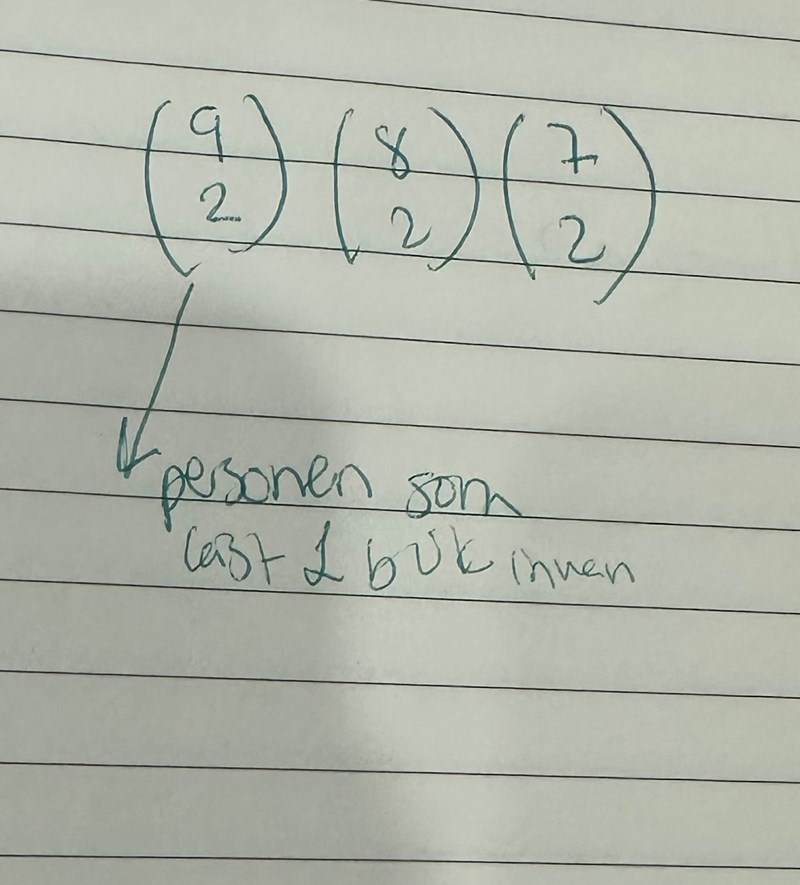 (9 2) (8 2) (7 2)
personen som
läst 1 bok innan